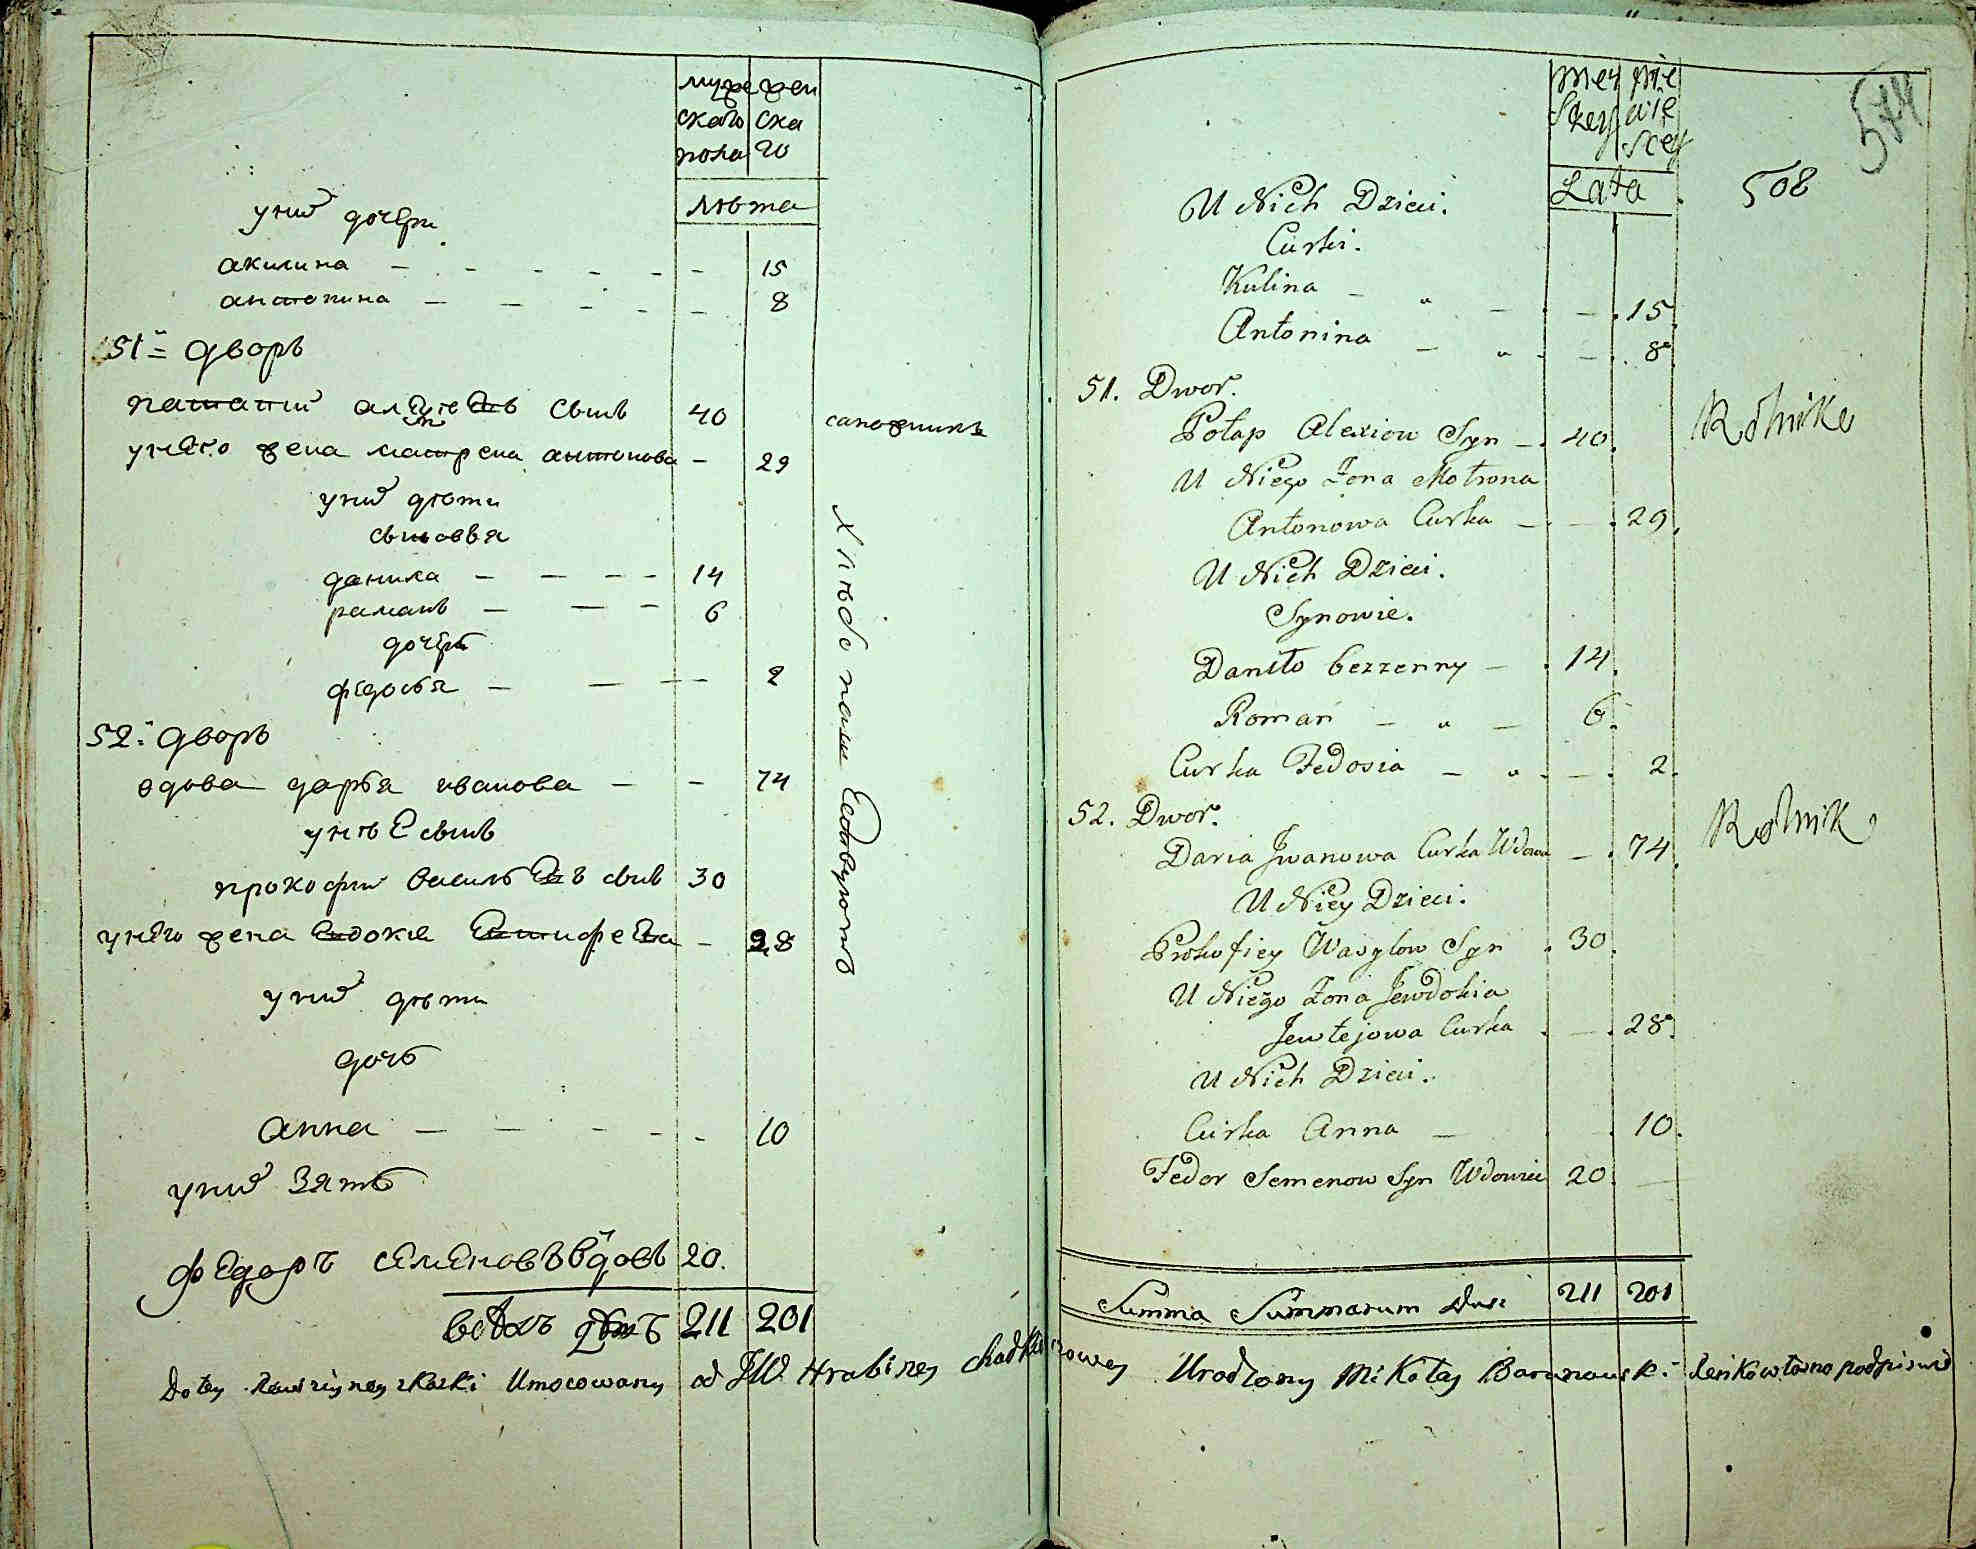 муже жен
скаго ска
пола го
лѣта
унихъ дочери
акилина - - - - - - 15
антонина - - - - - 8
51й дворъ
патапий алексѣевъ сынъ 40 сапожникъ
унего жена матрена антонова - 29
унихъ дѣти
сыновья
данила - - - - 14
раманъ - - - 6
дочерь
федосья - - - - 2
52й дворъ
вдова дарья иванова - - 74
унѣе сынъ
прокофий васильевъ сынъ 30
унего жена евдокия - 28
унихъ дѣти
дочь
анна - - - - - 10
унихъ зять
федоръ семеновъ вдовъ 20.
211 201
хлѣбо пашествуютъ
574
508
męz nie
skey wie
scey
Lata
U Nich Dzieci.
Curki.
Kulina - " - - 15.
Antonina - " - - 8.
51. Dwor.
Potap Alexiow Syn - 40. Rolnik
U Niego Zona Motrona
Antonowa Curka - - 29.
U Nich Dzieci.
Synowie.
Daniło bezzenny - 14.
Roman - " - 6.
Curka Fedosia - " - 2.
52. Dwor.
Daria Jwanowa Curka Wdowa - 74. Rolnik
U Niey Dzieci.
Prokofiey Wasylow Syn 30.
U Niego Zona Jewdokia
Jewtejowa Curka - 28.
U Nich Dzieci.
Curka Anna - 10.
Fedor Semenow Syn Wdowiec 20. -
Summa Summarum Dusz 211 201
Do tey Rewizyiney skazki Umocowany od JW. Hrabiney Chodkiewiczowey Urodzony Mikołay Baranowski